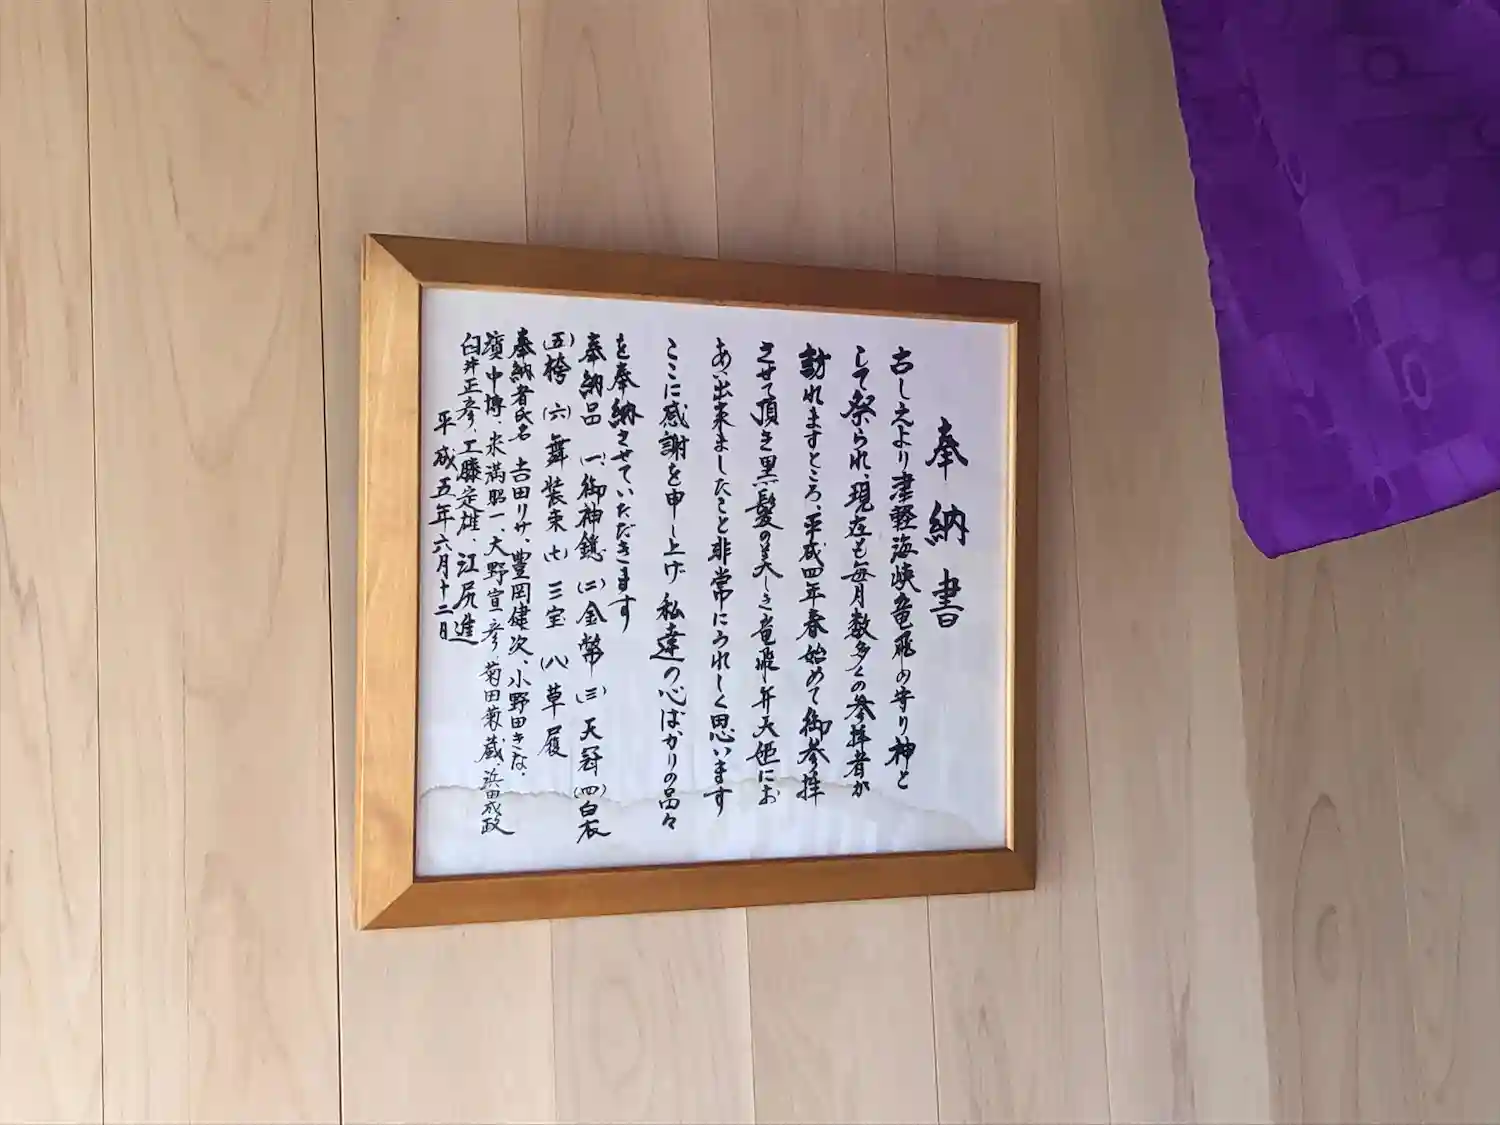 奉納書
古しえより津軽海峡竜飛の守り神と
して祭られ、現在も毎月数多くの参拝者が
訪れますところ、平成四年春始めて御参拝
させて頂き黒髪の美しき竜飛弁天姫にお
あい出来ましたこと非常にうれしく思います
ここに感謝を申し上げ私達の心ばかりの品々
を奉納させていただきます
奉納品 (一)御神鏡 (二)金幣 (三)天冠 (四)白衣
(五)袴 (六)舞装束 (七)三宝 (八)草履
奉納者氏名 吉田リサ、豊岡健次、小野田きな、
濱中博、米満昭一、大野宣彦、菊田菊蔵、浜田成政
臼井正彦、工藤定雄、江尻進
平成五年六月十二日